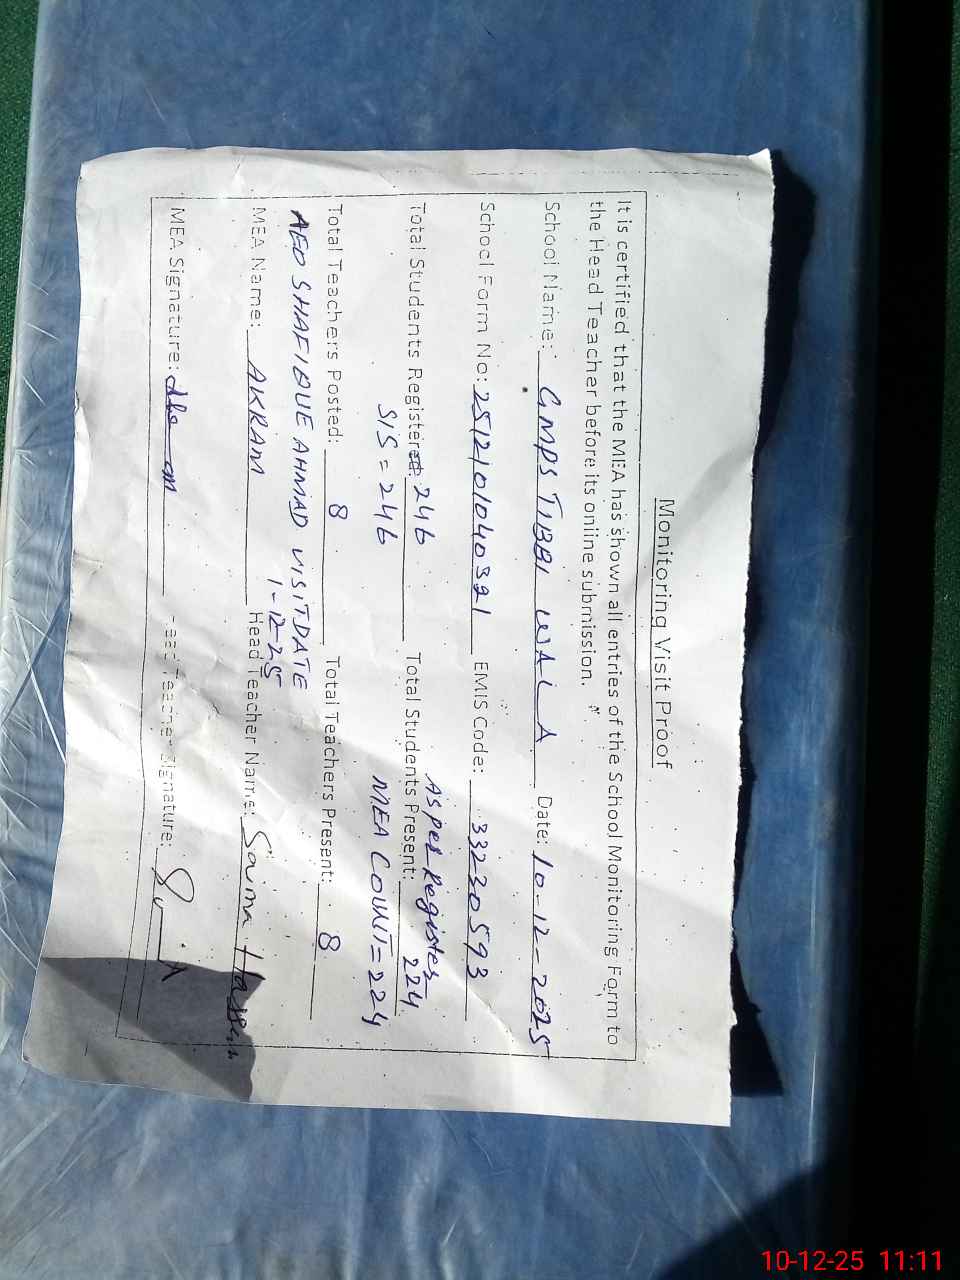 Monitoring Visit Proof
It is certified that the MEA has shown all entries of the School Monitoring Form to
the Head Teacher before its online submission.
School Name: GMPS TIBBI WALA Date: 10-12-2025
School Form No: 2512101040321 EMIS Code: 33230593
As per Register
Total Students Registered: 246 Total Students Present: 224
SIS = 246 MEA COUNT = 224
Total Teachers Posted: 8 Total Teachers Present: 8
AEO SHAFIQUE AHMAD VISIT DATE
1-12-25
MEA Name: AKRAM Head Teacher Name: Saima Hassan
MEA Signature: Head Teacher Signature:
10-12-25 11:11